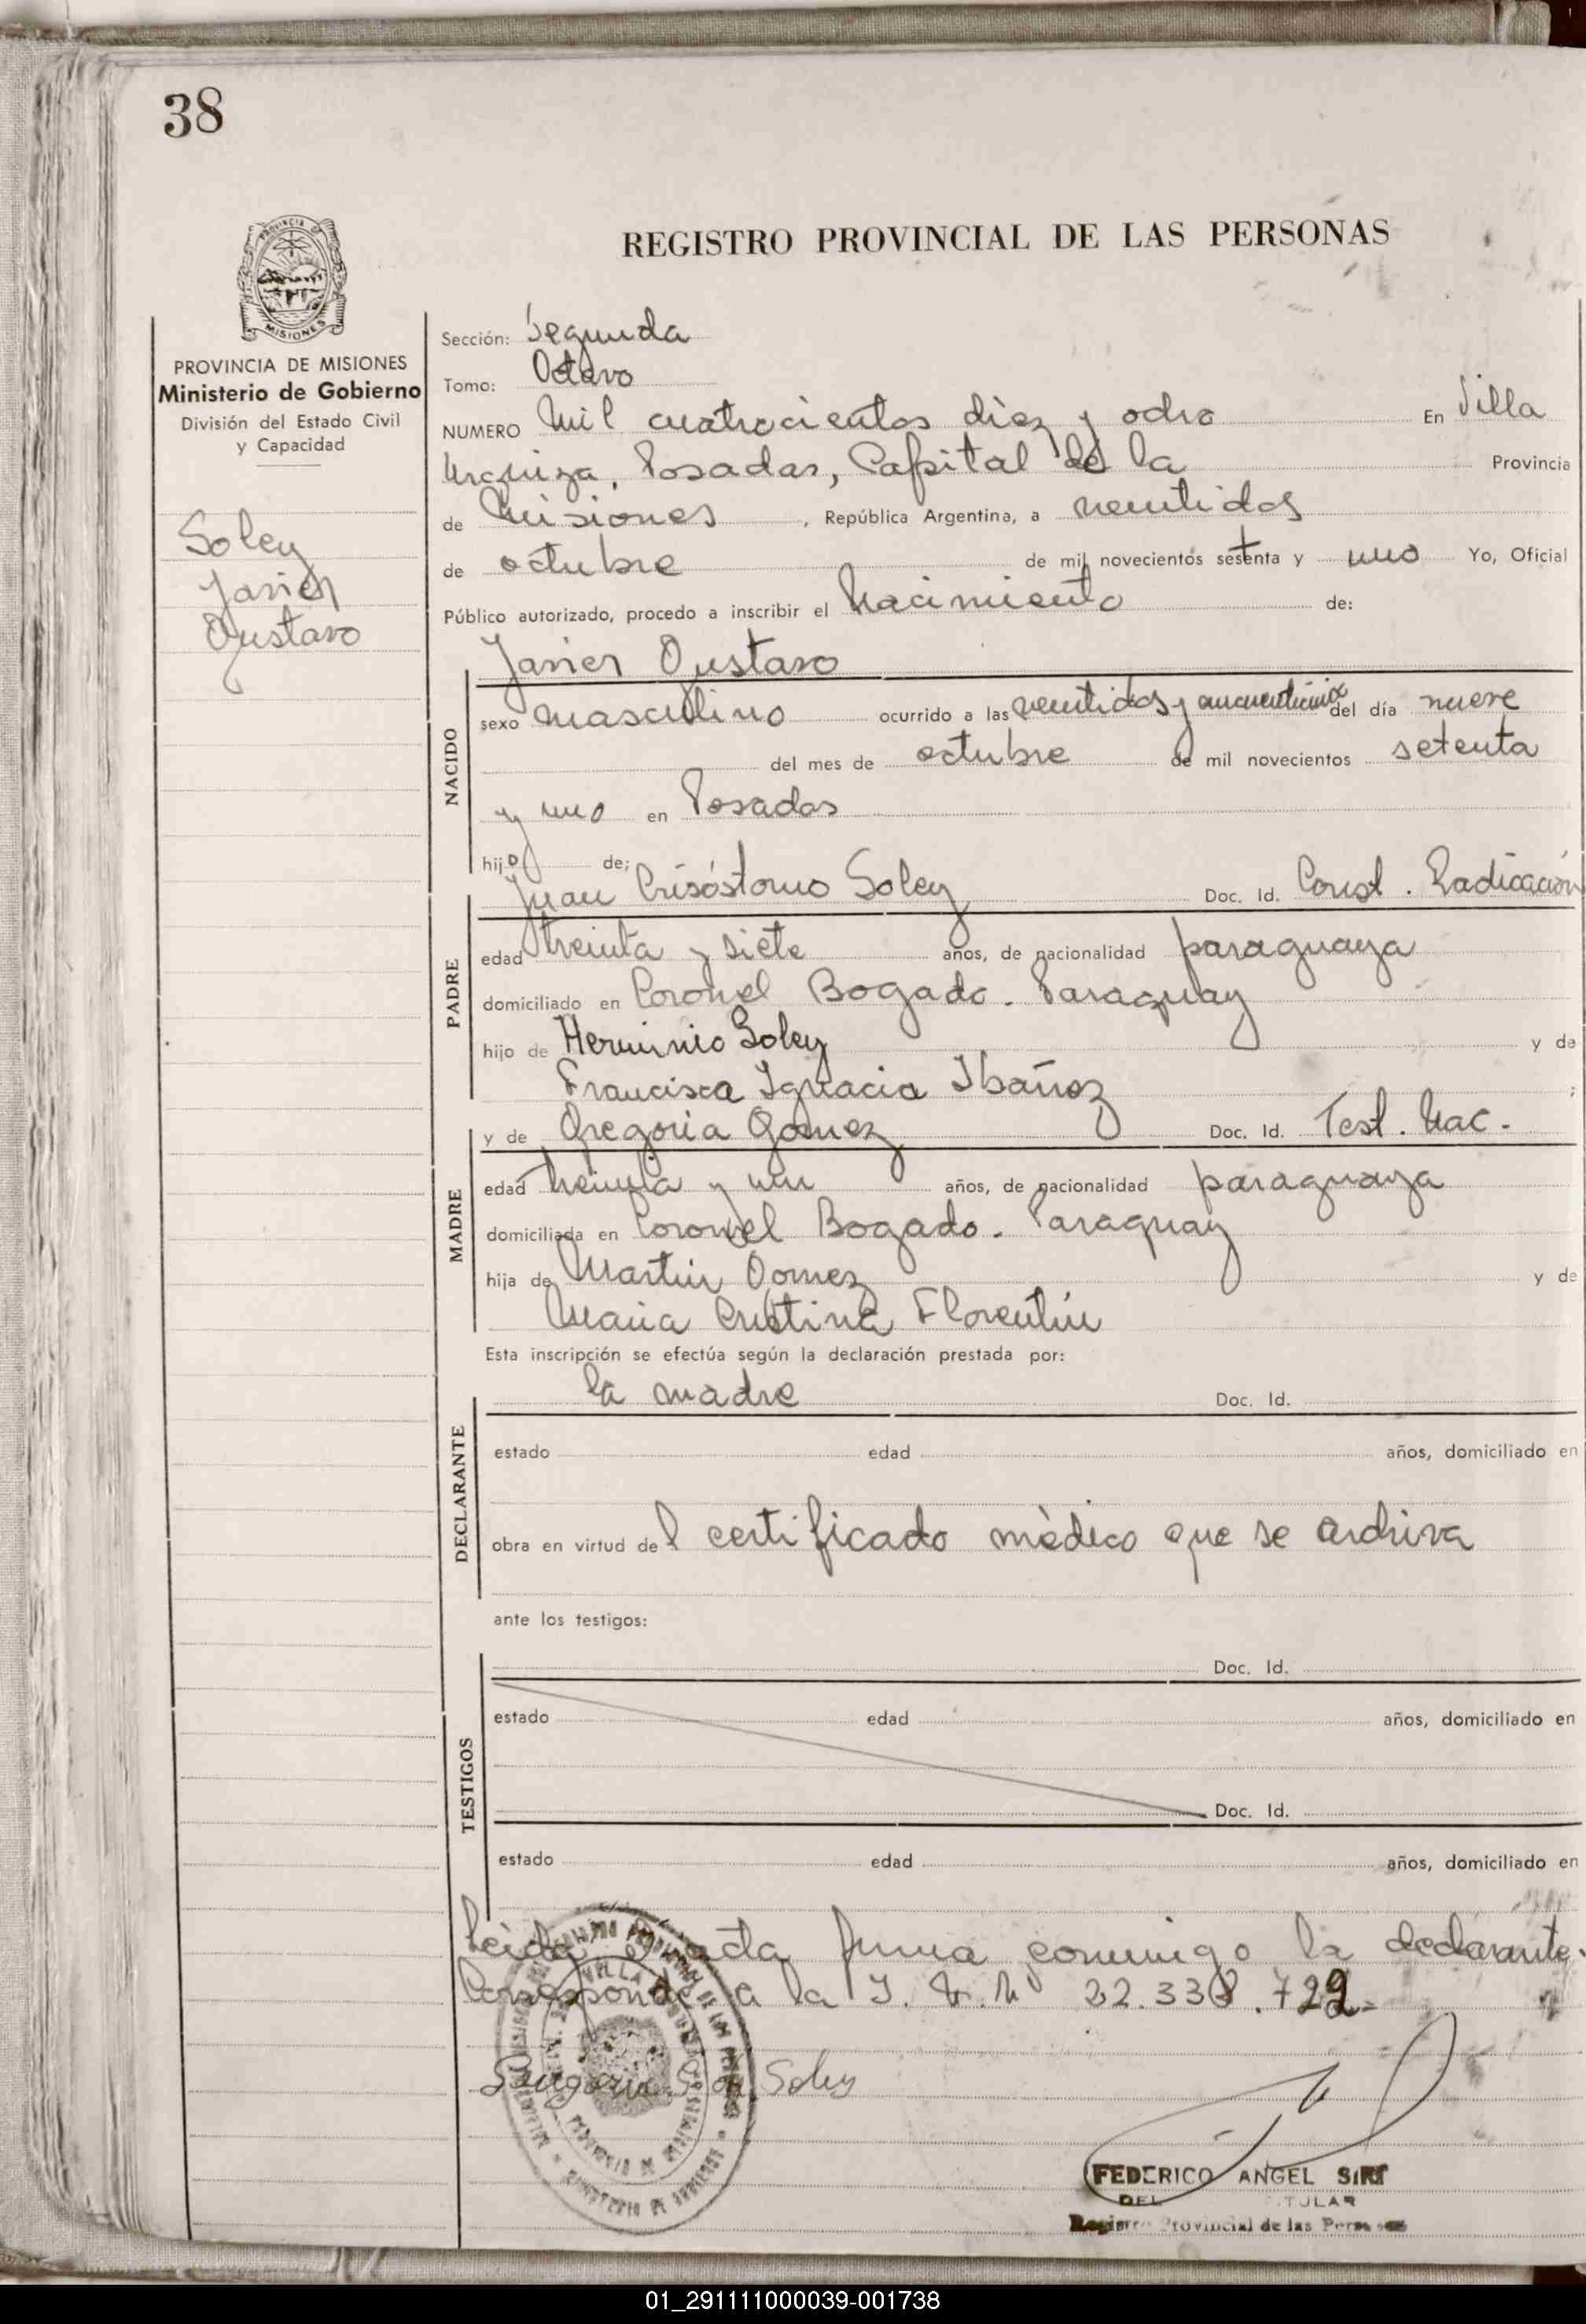 38
REGISTRO PROVINCIAL DE LAS PERSONAS
PROVINCIA DE MISIONES
Ministerio de Gobierno
División del Estado Civil
y Capacidad
Soley
Javier
Gustavo
Sección: Segunda
Tomo: Octavo
NUMERO Mil cuatrocientos diez y ocho En Villa
Urquiza, Posadas, Capital de la Provincia
de Misiones, República Argentina, a veintidos
de octubre de mil novecientos setenta y uno Yo, Oficial
Público autorizado, procedo a inscribir el Nacimiento de:
Javier Gustavo
NACIDO
sexo masculino ocurrido a las veintidos y del día nueve
del mes de octubre de mil novecientos setenta
y uno en Posadas
hijo de;
Juan Crisóstomo Soley Doc. Id. Const. Radicación
PADRE
edad treinta y siete años, de nacionalidad paraguaya
domiciliado en Coronel Bogado. Paraguay
hijo de Herminio Soley y de
Francisca Ignacia Ibañez ;
y de Gregoria Gomez Doc. Id. Test. Nac.
MADRE
edad treinta y un años, de nacionalidad paraguaya
domiciliada en Coronel Bogado. Paraguay
hija de Martin Gomez y de
Maria Cristina Florentín
Esta inscripción se efectúa según la declaración prestada por:
la madre Doc. Id.
DECLARANTE
estado edad años, domiciliado en
obra en virtud del certificado mèdico que se archiva
ante los testigos:
Doc. Id.
TESTIGOS
estado edad años, domiciliado en
Doc. Id.
estado edad años, domiciliado en
Leida el acta firma conmigo la declarante.
Corresponde a la 22.338.722-
Gregoria G. de Soley
FEDERICO ANGEL SIRI
Registro Provincial de las Personas
01_291111000039-001738